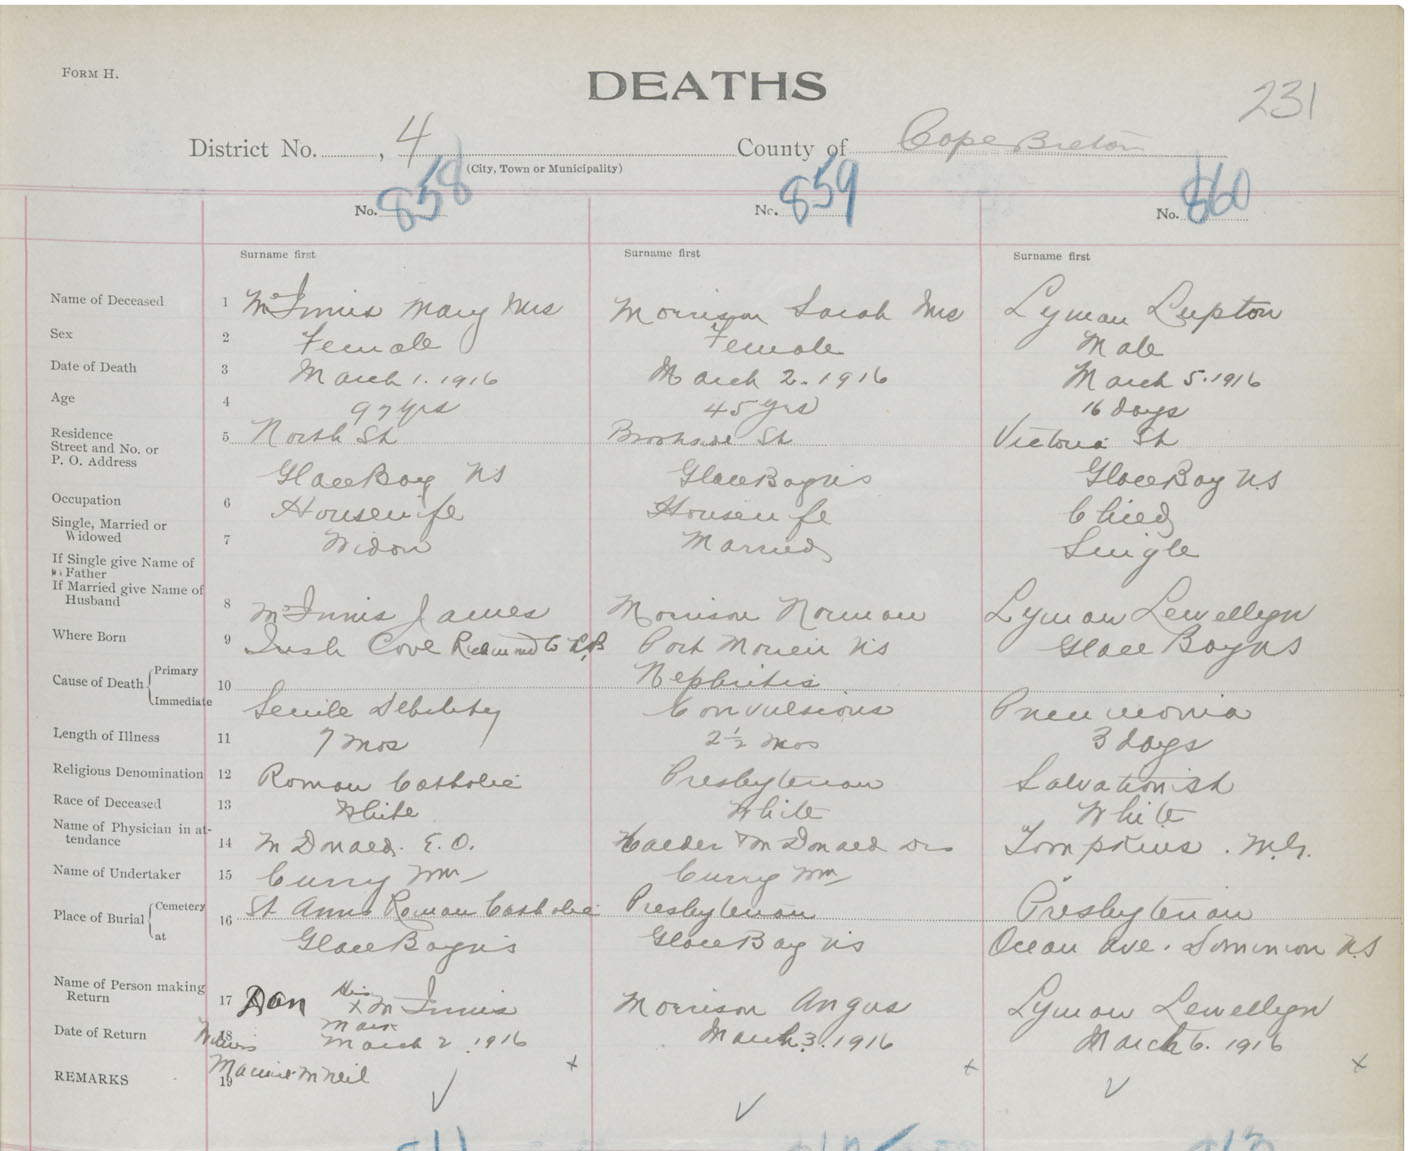 FORM H.
DEATHS
231
District No. , 4 County of Cape Breton
(City, Town or Municipality)
No. 858 No. 859 No. 860
Surname first Surname first Surname first
Name of Deceased 1 McInnis Mary Mrs Morrison Sarah Mrs Lyman Lupton
Sex 2 Female Female Male
Date of Death 3 March 1. 1916 March 2. 1916 March 5. 1916
Age 4 97 yrs 45 yrs 16 days
Residence 5 North St Brookside St Victoria St
Street and No. or
P. O. Address Glace Bay NS Glace Bay NS Glace Bay N.S
Occupation 6 Housewife Housewife Child
Single, Married or
Widowed 7 Widow Married Single
If Single give Name of
Father
If Married give Name of
Husband 8 McInnis James Morrison Norman Lyman Lewellyn
Where Born 9 Irish Cove Richmond Co C.B Port Morien NS Glace Bay NS
Cause of Death Primary 10 Nephritis
Immediate Senile Debility Convulsions Pneumonia
Length of Illness 11 7 mos 2½ mos 3 days
Religious Denomination 12 Roman Catholic Presbyterian Salvationist
Race of Deceased 13 White White White
Name of Physician in at-
tendance 14 McDonald. E. O. Calder & McDonald Drs Tompkins. M.G.
Name of Undertaker 15 Curry Wm Curry Wm "
Place of Burial Cemetery 16 St Anns Roman Catholic Presbyterian Presbyterian
at Glace Bay NS Glace Bay NS Ocean Ave. Dominion N.S
Name of Person making
Return 17 Dan His x McInnis Morrison Angus Lyman Lewellyn
Mark
Date of Return 18 Witness March 2. 1916 March 3. 1916 March 6. 1916
x x x
REMARKS 19 McNeil